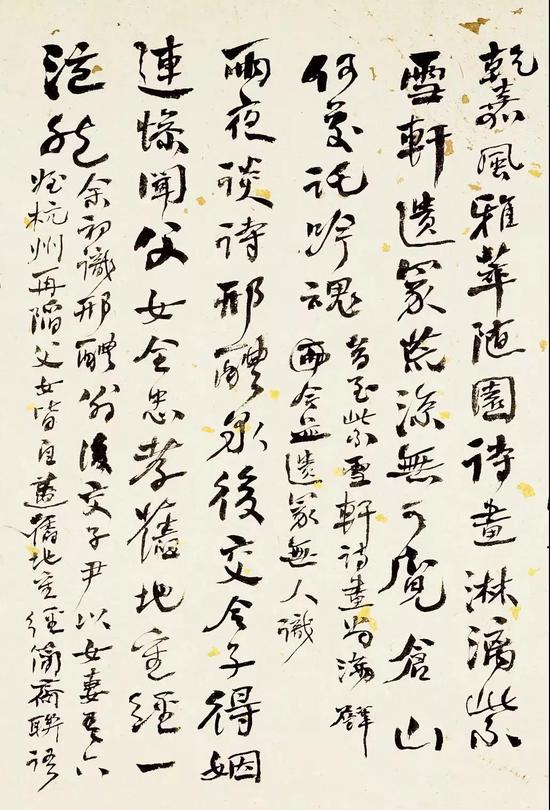 乾嘉風雅萃随園詩畫淋漓紫
雪軒遺冢荒涼無可覓倉山
何處託吟魂
昔至紫雪軒詩畫尚滿壁
而今並遺冢無人識
雨夜談詩邢醴泉後交令子得姻
連慘聞父女全忠孝舊地重經一
泫然
余初識邢醴翁後交子尹以女妻吾六
姪杭州再陷父女皆自盡舊地重經簡齋聯語